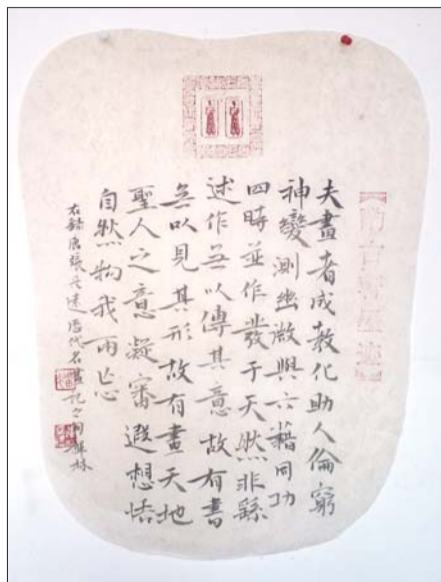 夫畫者成教化助人倫窮
神變測幽微與六籍同功
四時並作發于天然非繇
述作無以傳其意故有書
無以見其形故有畫天地
聖人之意凝審遐想悟
自然物我兩忘
右錄唐張彥遠歷代名畫記